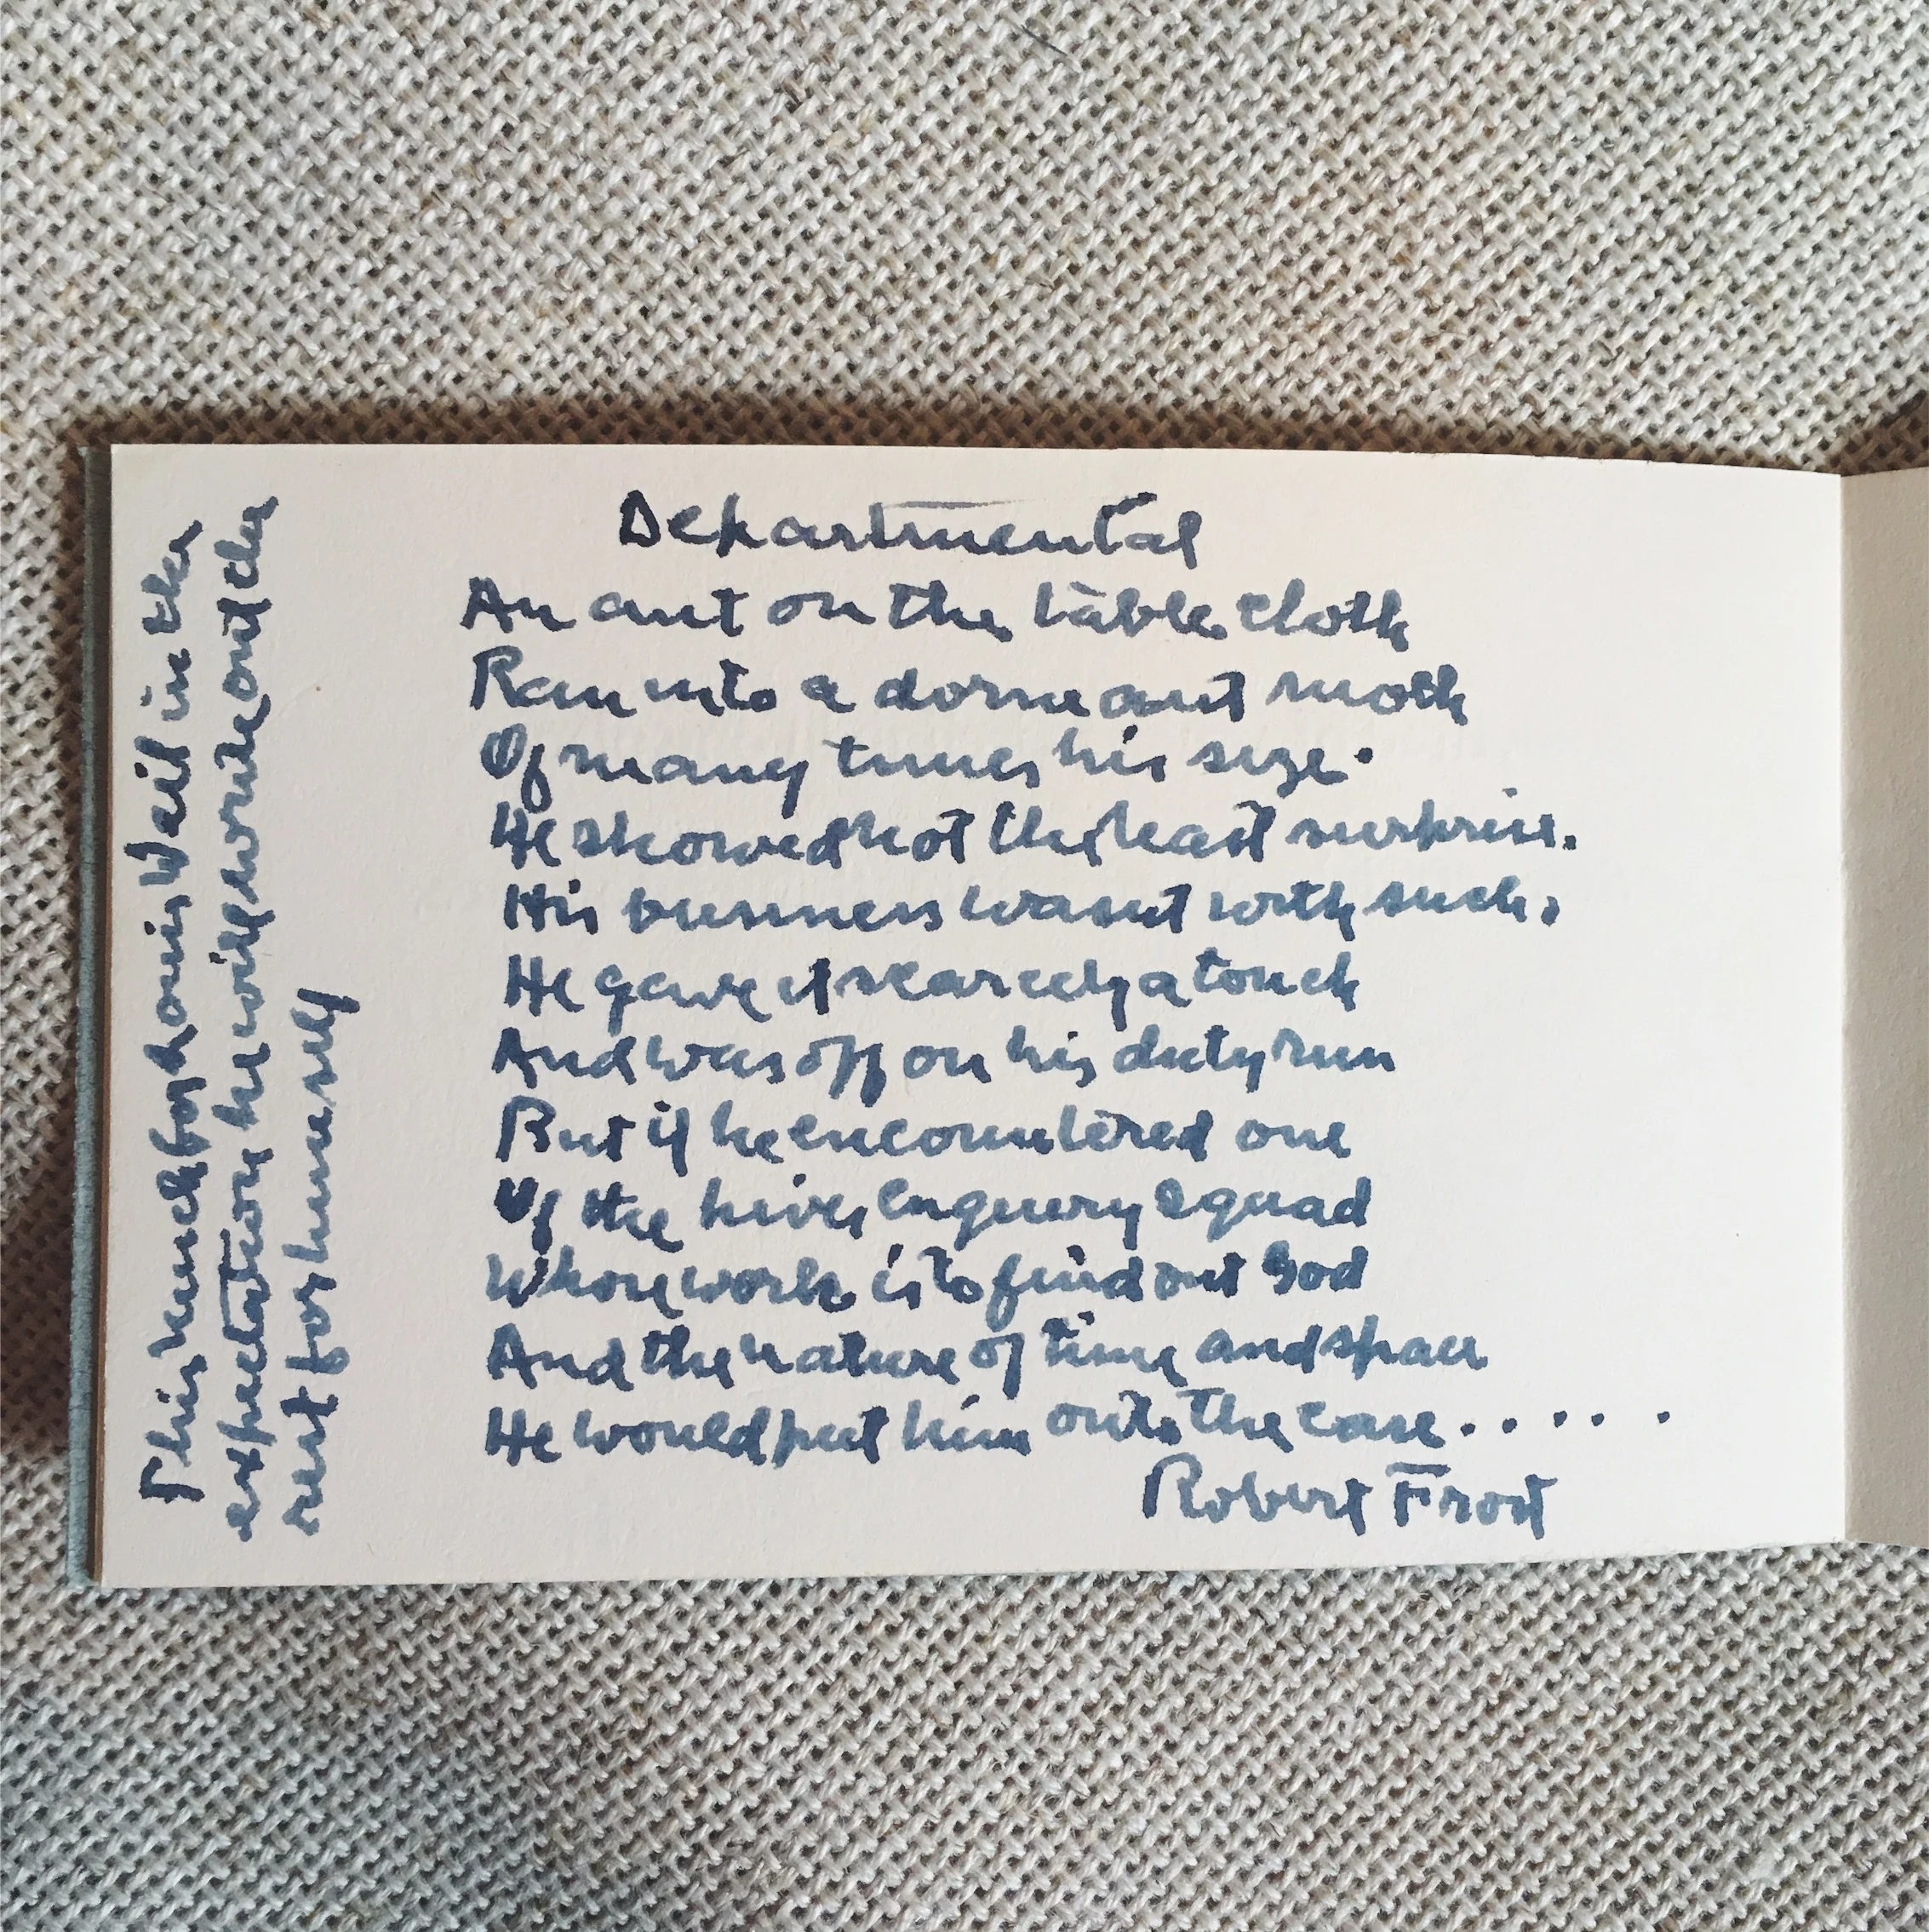 Departmental
An ant on the table cloth
Ran into a dormeant moth
Of many times his size.
He showed not the least surprise.
His business wasnt with such.
He gave it scarcely a touch
And was off on his duty run
But if he encountered one
Of the hives enquery squad
Whose work is to find out God
And the nature of time and space
He would put him onto the case.....
Robert Frost
This much for Louis Wail in the
expectation he will write out the
rest for himself